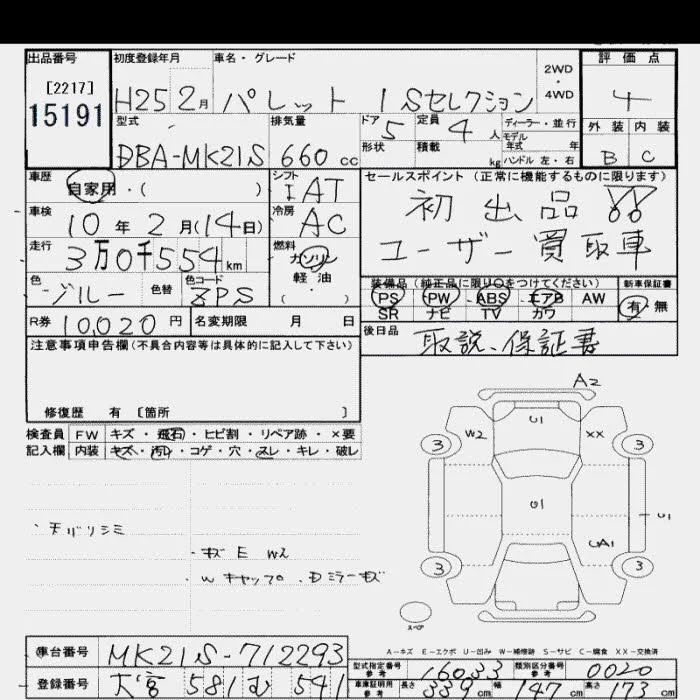 出品番号 初度登録年月 車名・グレード 2WD・4WD 評価点
[2217]
15191
H25 2月 パレット ISセレクション 4
型式 排気量 ドア 5 定員 4人 ディーラー・並行 外装 内装
モデル年式 年
DBA-MK21S 660cc 形状 積載 kg ハンドル 左・右 B C
車歴 シフト セールスポイント (正常に機能するものに限ります)
自家用・( ) IAT
初出品!!
車検 冷房
10年2月(14日) AC
ユーザー買取車
走行 燃料
3万0千554km ガソリン
軽油
( )
色 色替 色コード 装備品(純正品に限り○をつけてください) 新車保証書
ブルー ZPS PS PW ABS エアB AW 有・無
SR ナビ TV カワ
R券 10,020円 名変期限 月 日
後日品 取説、保証書
注意事項申告欄(不具合内容等は具体的に記入して下さい)
修復歴 有 [箇所 ]
検査員 FW キズ・飛石・ヒビ割・リペア跡・×要
記入欄 内装 キズ・汚れ・コゲ・穴・スレ・キレ・破レ
A2
U1
W2 XX
3 3
U1
U1
UA1
3 3
スペア
・キズ E W2
・Wキャップ .Dミラーキズ
A-キズ E-エクボ U-凹み W-補修跡 S-サビ C-腐食 XX-交換済
車台番号 MK21S-712293
型式指定番号 参考 16033 類別区分番号 参考 0020
登録番号 大宮 581 む 541
車庫証明用 参考 長さ 339cm 幅 147cm 高さ 173cm